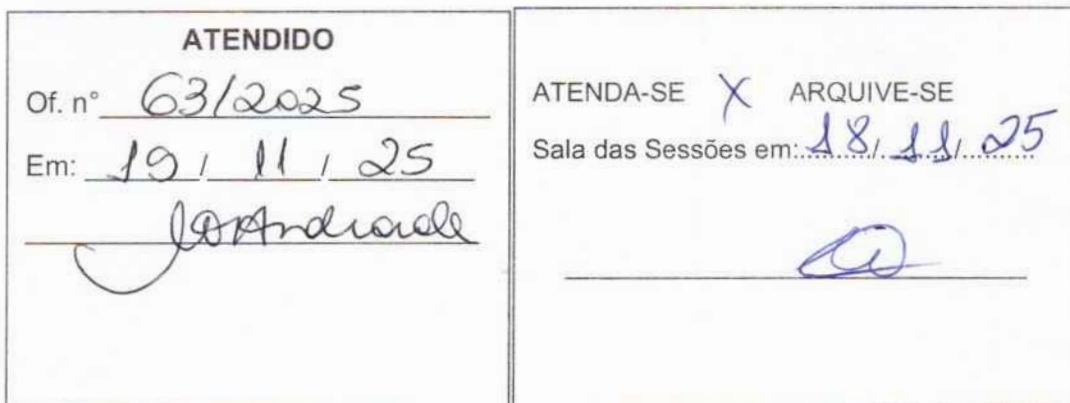 ATENDIDO
Of. n° 63/2025
Em: 19 / 11 / 25
ATENDA-SE X ARQUIVE-SE
Sala das Sessões em: 18 / 11 / 25